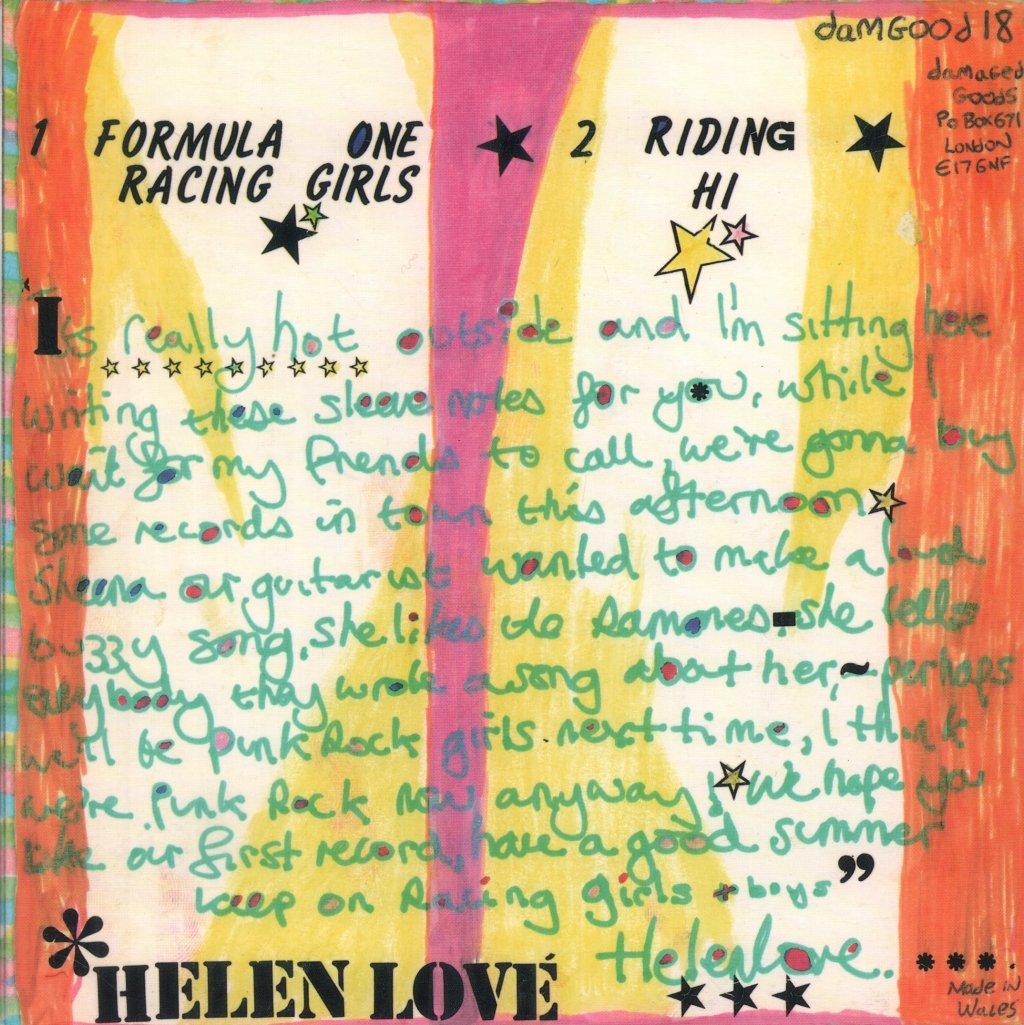 daMGOOd 18
damaged
GOOdS
Po Box 671
LONDON
E17 6NF
1 FORMULA ONE
RACING GIRLS
2 RIDING
HI
"Its really hot outside and I'm sitting here
writing these sleeve notes for you, while I
wait for my friends to call, we're gonna buy
some records in town this afternoon
Sheena our guitarist wanted to make a loud
buzzy song, she likes de Ramones. she tells
everybody they wrote a song about her, ~ perhaps
we'll be Punk Rock girls next time, I think
we're Punk Rock now anyway! We hope you
like our first record, have a good summer
keep on Racing girls + boys"
Helen Love.
*HELEN LOVÉ
***.
Made iN
Wales